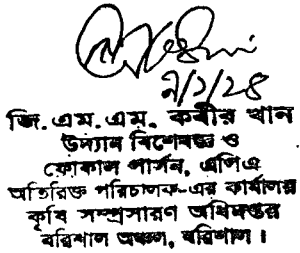 ৭/১/২৪
জি. এম. এম. কবীর খান
উদ্যান বিশেষজ্ঞ ও
ফোকাল পার্সন, এপিএ
অতিরিক্ত পরিচালক-এর কার্যালয়
কৃষি সম্প্রসারণ অধিদপ্তর
বরিশাল অঞ্চল, বরিশাল।